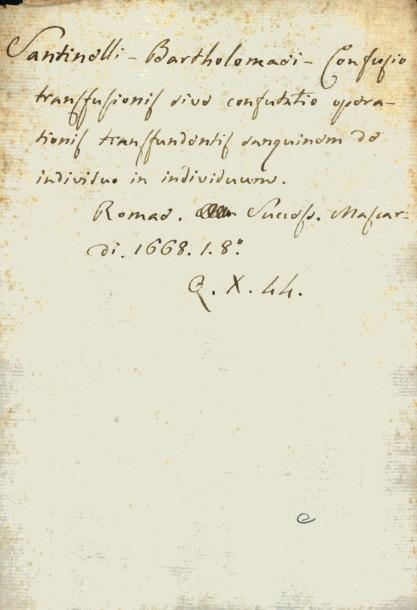 Santinelli - Bartholomaei - Confusio
transfusionis sive confutatio opera-
tionis transfundentis sanguinem de
individuo in individuum.
Romae. Success. Mascar-
di. 1668. 1. 8°.
Q. X. 44.